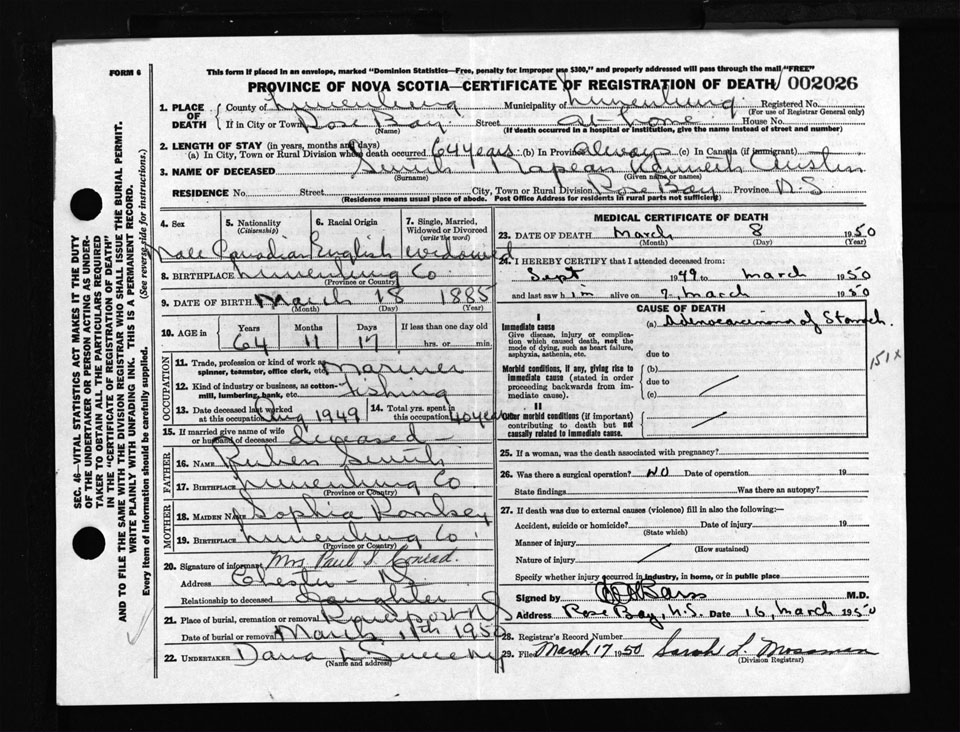 FORM 6
This form if placed in an envelope, marked "Dominion Statistics—Free, penalty for improper use $300," and properly addressed will pass through the mail "FREE"
PROVINCE OF NOVA SCOTIA—CERTIFICATE OF REGISTRATION OF DEATH 002026
1. PLACE OF DEATH County of Lunenburg Municipality of Lunenburg Registered No.
(For use of Registrar General only)
If in City or Town Rose Bay Street at home House No.
(Name) (If death occurred in a hospital or institution, give the name instead of street and number)
2. LENGTH OF STAY (in years, months and days)
(a) In City, Town or Rural Division where death occurred 64 years (b) In Province always (c) In Canada (if immigrant)
3. NAME OF DECEASED Smith Napean Kenneth Austin
(Surname) (Given name or names)
RESIDENCE No. Street City, Town or Rural Division Rose Bay Province N.S
(Residence means usual place of abode. Post Office Address for residents in rural parts not sufficient)
4. Sex 5. Nationality (Citizenship) 6. Racial Origin 7. Single, Married, Widowed or Divorced (write the word)
Male Canadian English Widowed
8. BIRTHPLACE Lunenburg Co
(Province or Country)
9. DATE OF BIRTH March 18 1885
(Month) (Day) (Year)
10. AGE in Years Months Days If less than one day old
64 11 17 hrs. or min.
OCCUPATION
11. Trade, profession or kind of work as spinner, teamster, office clerk, etc. Mariner
12. Kind of industry or business, as cotton-mill, lumbering, bank, etc. Fishing
13. Date deceased last worked at this occupation Aug 1949 14. Total yrs. spent in this occupation 40 years
15. If married give name of wife or husband of deceased deceased—
FATHER
16. NAME Ruben Smith
17. BIRTHPLACE Lunenburg Co
(Province or Country)
MOTHER
18. MAIDEN NAME Sophia Romkey
19. BIRTHPLACE Lunenburg Co
(Province or Country)
20. Signature of informant Mrs. Paul S. Conrad.
Address Chester — N.S
Relationship to deceased Daughter
21. Place of burial, cremation or removal N.S
Date of burial or removal March 11th 1950
22. UNDERTAKER Sweeny
(Name and address)
MEDICAL CERTIFICATE OF DEATH
23. DATE OF DEATH March 8 1950
(Month) (Day) (Year)
24. I HEREBY CERTIFY that I attended deceased from:
Sept 1949 to March 1950
and last saw him alive on 7, March 1950
CAUSE OF DEATH
I
Immediate cause (a) Adenocarcinoma of Stomach.
Give disease, injury or complication which caused death, not the mode of dying, such as heart failure, asphyxia, asthenia, etc.
due to
151x
Morbid conditions, if any, giving rise to immediate cause (stated in order proceeding backwards from immediate cause).
(b)
due to
(c)
II
Other morbid conditions (if important) contributing to death but not causally related to immediate cause.
25. If a woman, was the death associated with pregnancy?
26. Was there a surgical operation? NO Date of operation 19
State findings Was there an autopsy?
27. If death was due to external causes (violence) fill in also the following:—
Accident, suicide or homicide? Date of injury 19
(State which)
Manner of injury
(How sustained)
Nature of injury
Specify whether injury occurred in industry, in home, or in public place
Signed by M.D.
Address Rose Bay, N.S. Date 16, March 1950
28. Registrar's Record Number
29. Filed March 17 1950 Sarah L. Mossman
(Division Registrar)
SEC. 46—VITAL STATISTICS ACT MAKES IT THE DUTY
OF THE UNDERTAKER OR PERSON ACTING AS UNDERTAKER TO OBTAIN ALL THE PARTICULARS REQUIRED
IN THE "CERTIFICATE OF REGISTRATION OF DEATH"
AND TO FILE THE SAME WITH THE DIVISION REGISTRAR WHO SHALL ISSUE THE BURIAL PERMIT.
WRITE PLAINLY WITH UNFADING INK. THIS IS A PERMANENT RECORD.
Every item of information should be carefully supplied. (See reverse side for instructions.)